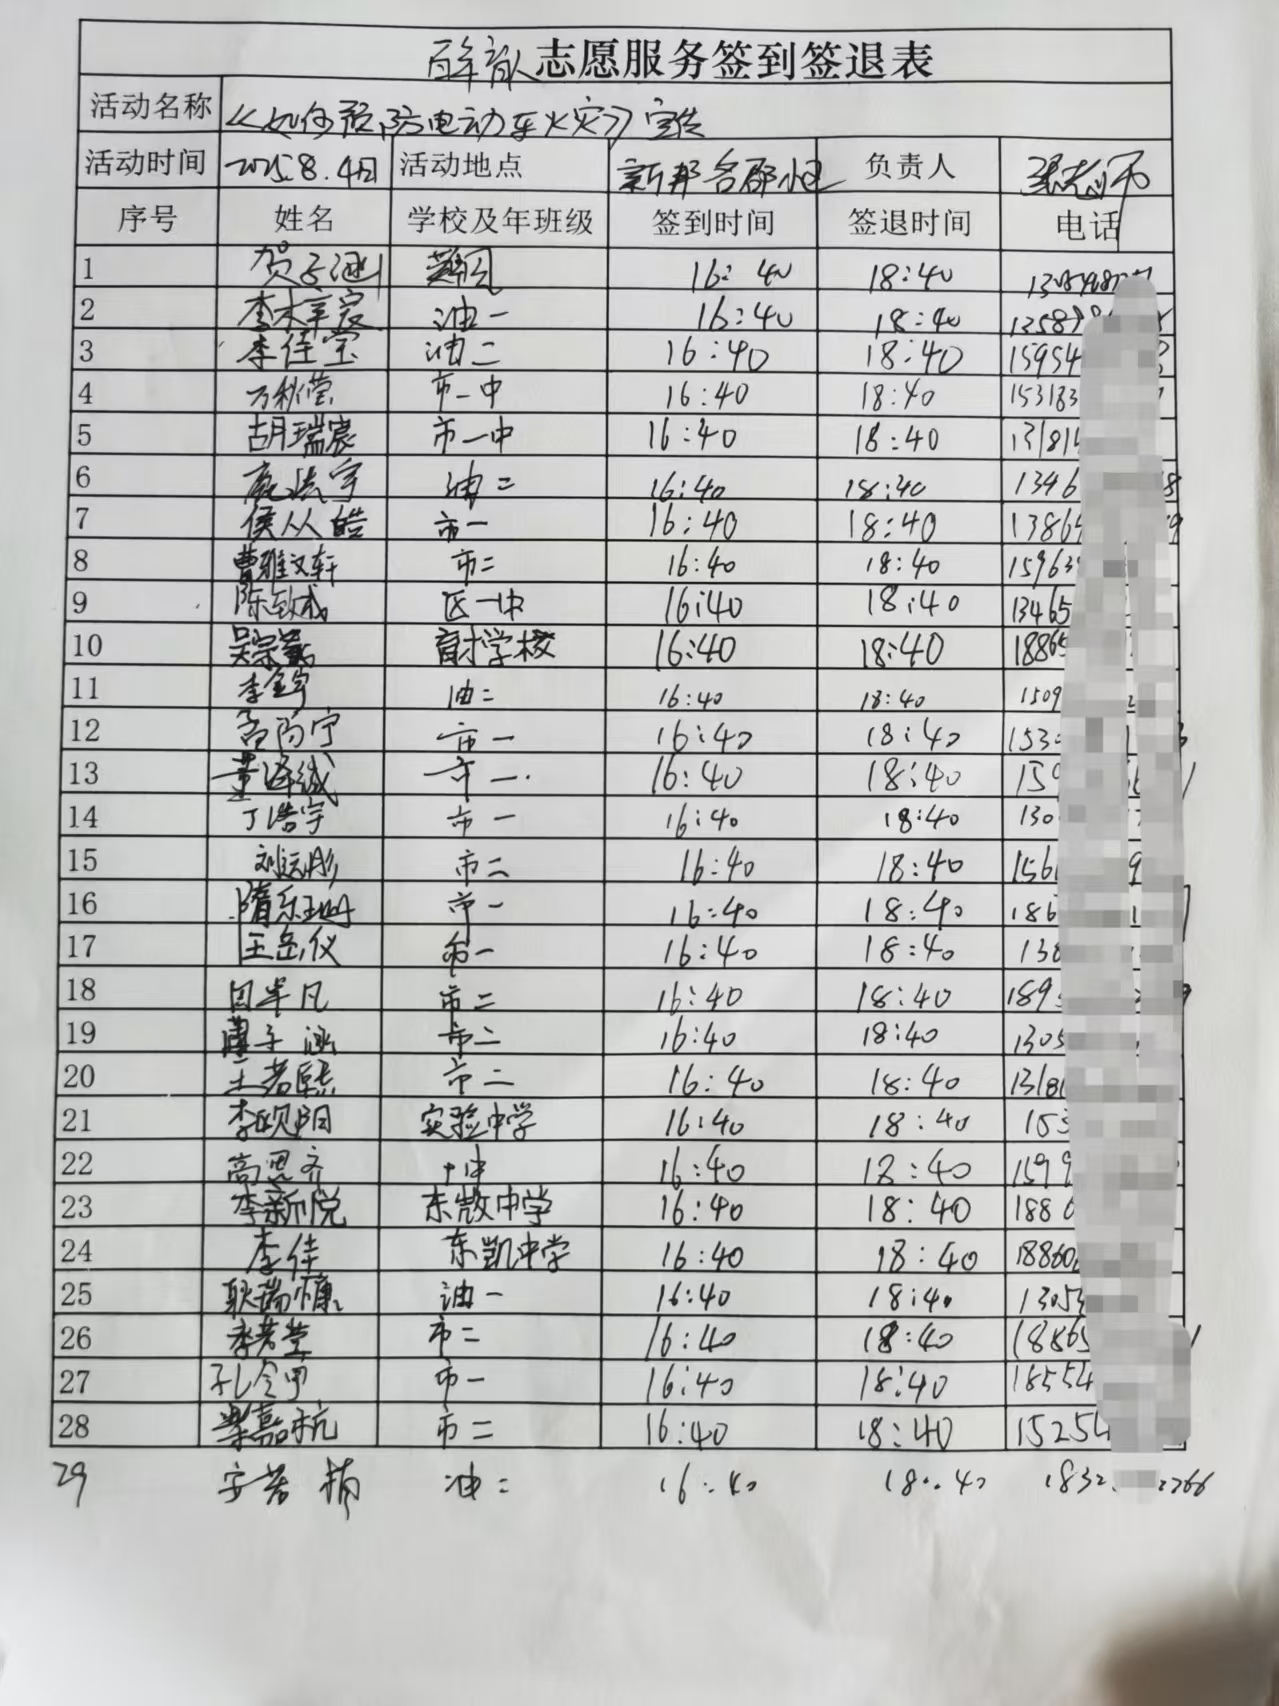 百年育人志愿服务签到签退表
活动名称 《如何预防电动车火灾》宣传
活动时间 2025.8.4日 活动地点 新邦名郡小区 负责人 张老师
序号 姓名 学校及年班级 签到时间 签退时间 电话
1 贺子涵 16:40 18:40
2 李木辛宸 油一 16:40 18:40
3 李佳莹 油二 16:40 18:40 15954
4 万秋莹 市一中 16:40 18:40 153183
5 胡瑞宸 市一中 16:40 18:40 13181
6 庞浩宇 油二 16:40 18:40 1346
7 侯从皓 市一 16:40 18:40 1386
8 曹雅文轩 市二 16:40 18:40 15963
9 陈钇成 区一中 16:40 18:40 13465
10 吴宗 育才学校 16:40 18:40 1886
11 李金宇 油二 16:40 18:40 1509
12 孟 宁 市一 16:40 18:40 153
13 董泽 市一 16:40 18:40 159
14 丁浩宇 市一 16:40 18:40 130
15 刘远彤 市二 16:40 18:40 156
16 隋乐珊 市一 16:40 18:40 186
17 王岳仪 市一 16:40 18:40 138
18 凡 市二 16:40 18:40 189
19 子涵 市二 16:40 18:40 1305
20 王若熙 市二 16:40 18:40 1318
21 李欧阳 实验中学 16:40 18:40 153
22 高思齐 十中 16:40 18:40 1599
23 李新悦 东凯中学 16:40 18:40 188
24 李佳 东凯中学 16:40 18:40 18860
25 耿瑞慷 油一 16:40 18:40 13053
26 李若莹 市二 16:40 18:40 18865
27 孔令 市一 16:40 18:40 18554
28 梁嘉杭 市二 16:40 18:40 15254
29 若楠 油二 16:40 18:40 1832 2266